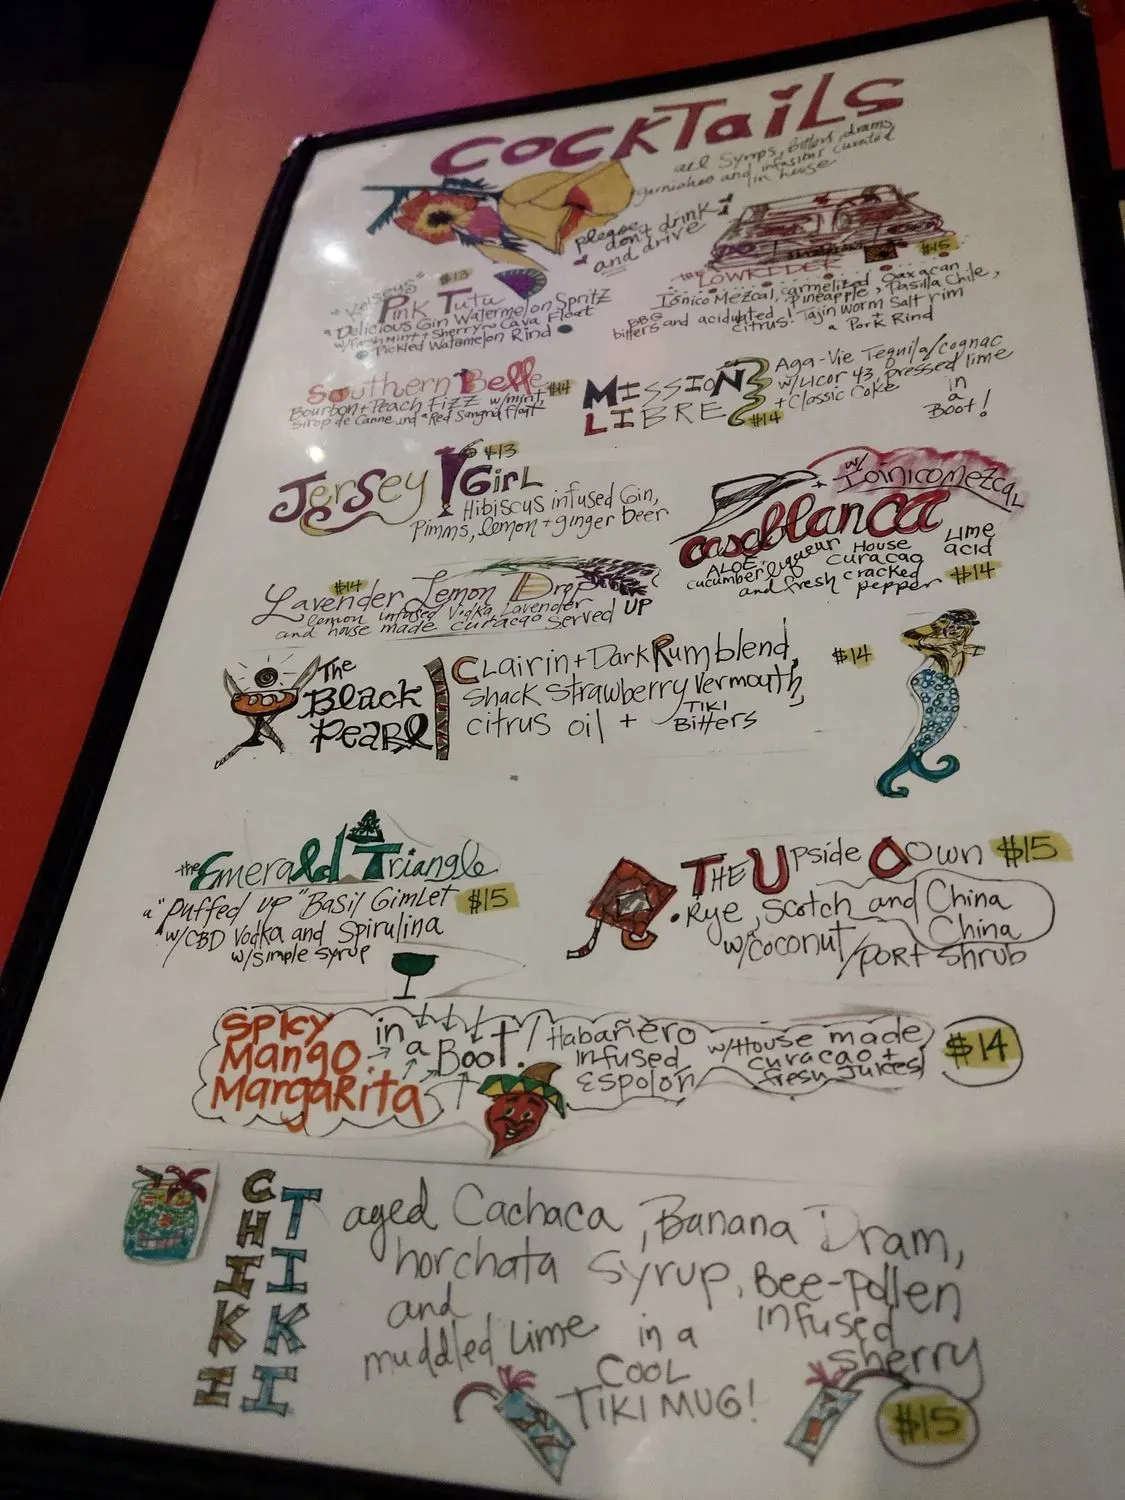 COCKTAILS
all Syrups, bitters, drams,
garnishes and infusions curated
in house
please
don't drink
and drive
$13
PINK TUTU
"Delicious Gin Watermelon Spritz
w/Fresh Mint + Sherry Cava Float
Pickled Watamelon Rind
$15
the LOWRIDER
Ionico Mezcal, carmelized Oaxacan
Pineapple, Pasilla Chile,
BBQ
bitters and acidulated
citrus! Tajin worm Salt rim
+
a Pork Rind
Southern Belle $14
Bourbon + Peach Fizz w/mint,
Sirop de Canne and a Red Sangria Float
MISSION
LIBRE
$14
Aga-Vie Tequila/cognac
w/Licor 43, pressed lime
+ Classic Coke
in
a
Boot!
Jersey Girl
$13
Hibiscus infused Gin,
Pimms, lemon + ginger beer
casablanca
+ w/ Ioinico mezcal
ALOE
cucumber liqueur House
curacao
Lime
acid
and fresh cracked
pepper
$14
$14
Lavender Lemon Drop
lemon infused Vodka, Lavender
and house made curacao served UP
The
Black
Pearl
Clairin + Dark Rum blend,
shack strawberry vermouth,
citrus oil + TIKI
Bitters
$14
the Emerald Triangle
a "puffed up" Basil Gimlet
w/CBD Vodka and Spirulina
w/simple syrup
$15
THE Upside Down $15
Rye, Scotch and China
China
w/coconut/port shrub
SPICY
Mango
MARGARITA
in
a
Boot!
/Habañero
infused
Espolón
w/House made
curacao +
fresh juices
$14
CHIKI
TIKI
aged Cachaca, Banana Dram,
horchata syrup, Bee-pollen
infused
sherry
and
muddled Lime in a
COOL
TIKI MUG!
$15